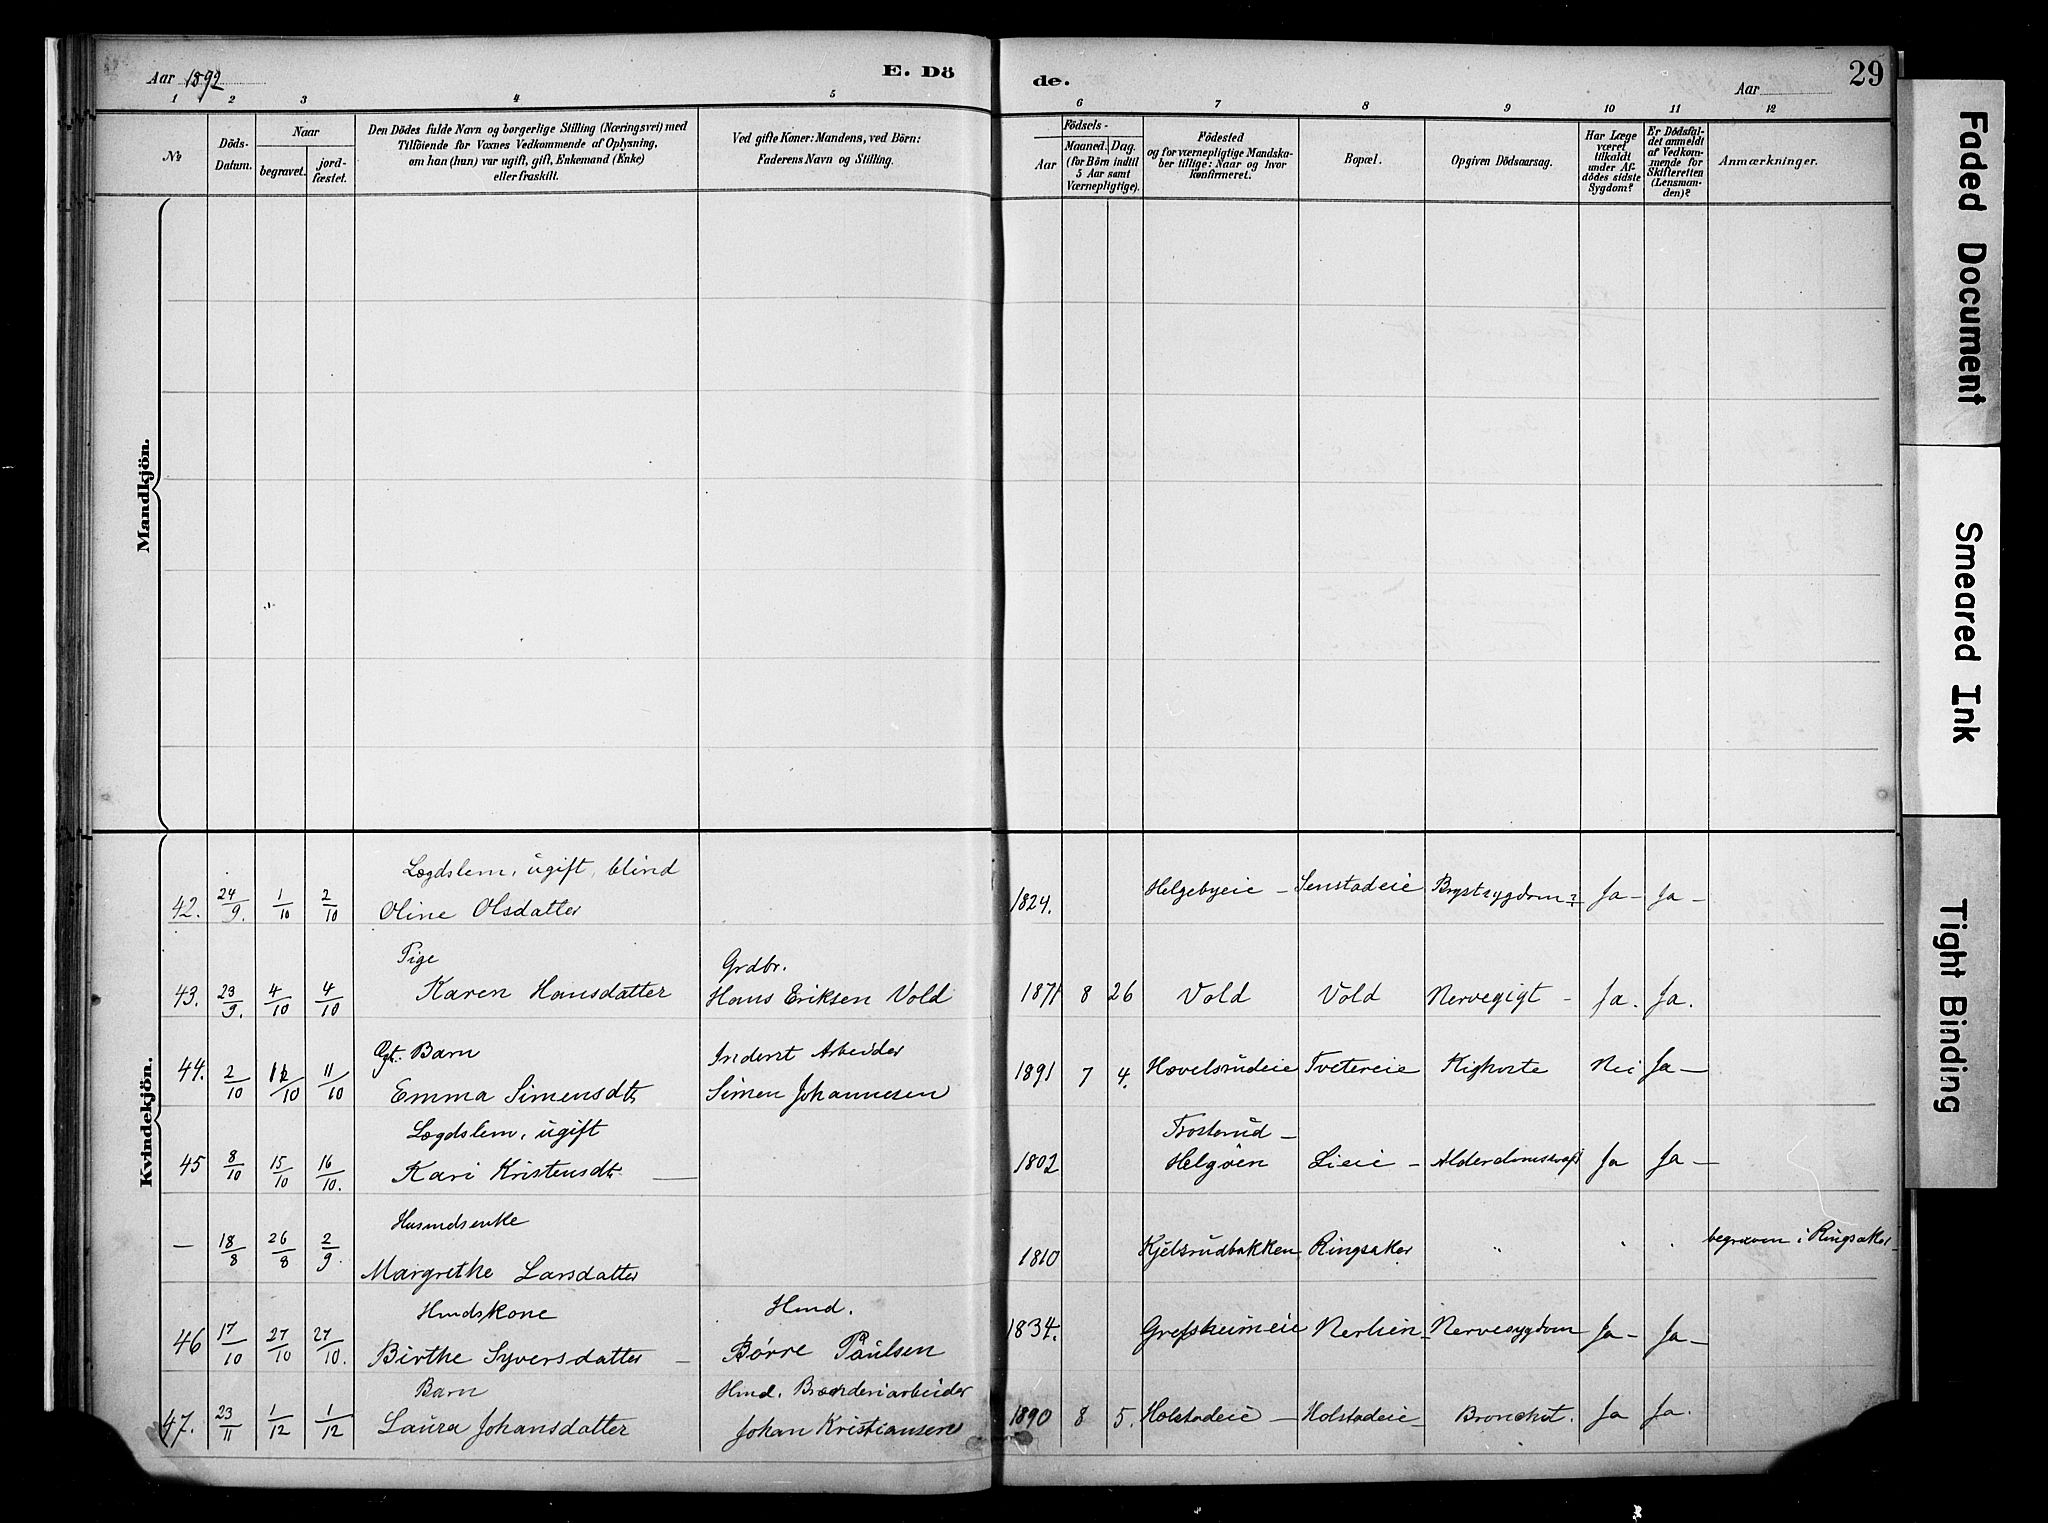 Aar 1892
E. Dö
de.
Aar
29
1 2 3 4 5 6 7 8 9 10 11 12
№
Döds-Datum.
Naar
begravet.
jord-fæstet.
Den Dödes fulde Navn og borgerlige Stilling (Næringsvei) med
Tilföiende for Voxnes Vedkommende af Oplysning,
om han (hun) var ugift, gift, Enkemand (Enke)
eller fraskilt.
Ved gifte Koner: Mandens, ved Börn:
Faderens Navn og Stilling.
Födsels-
Aar
Maaned. Dag.
(for Börn indtil
5 Aar samt
Værnepligtige).
Födested
og for værnepligtige Mandska-
ber tillige: Naar og hvor
konfirmeret.
Bopæl.
Opgiven Dödsaarsag.
Har Læge
været
tilkaldt
under Af-
dödes sidste
Sygdom?
Er Dödsfal-
det anmeldt
af Vedkom-
mende for
Skifteretten
(Lensman-
den)?
Anmærkninger.
Mandkjön.
Kvindekjön.
Lægdslem, ugift, blind
42. 24/9. 1/10 2/10 Oline Olsdatter 1824. Helgebyeie - Senstadeie Brystsygdom? Ja - Ja -
Pige Grdbr.
43. 23/9. 4/10 4/10 Karen Hansdatter Hans Eriksen Vold 1871 8 26 Vold Vold Nervegigt - Ja. Ja.
Ægt. Barn Inderst Arbeider
44. 2/10 11/10 11/10 Emma Simensdt. Simen Johannesen 1891 7 4. Hovelsrudeie Tvetereie Kighoste Nei Ja -
Lægdslem, ugift Frosterud -
45 8/10 15/10 16/10. Kari Kristensdt. 1802 Helgöen Lieie - Alderdomssvagh Ja Ja -
Husmdsenke
— 18/8 26/8 2/9. Margrethe Larsdatter 1810 Kjelsrudbakken Ringsaker " " " begraven i Ringsaker
Hmdskone Hmd.
46 17/10 27/10 27/10. Birthe Syversdatter - Børre Paulsen 1834. Grefsheimeie Nerlien - Nervesygdom Ja - Ja -
Barn Hmd. Brænderiarbeider
47. 23/11 1/12 1/12 Laura Johansdatter Johan Kristiansen 1890 8 5. Holstadeie - Holstadeie - Bronchit. Ja Ja.
Faded Document
Smeared Ink
Tight Binding